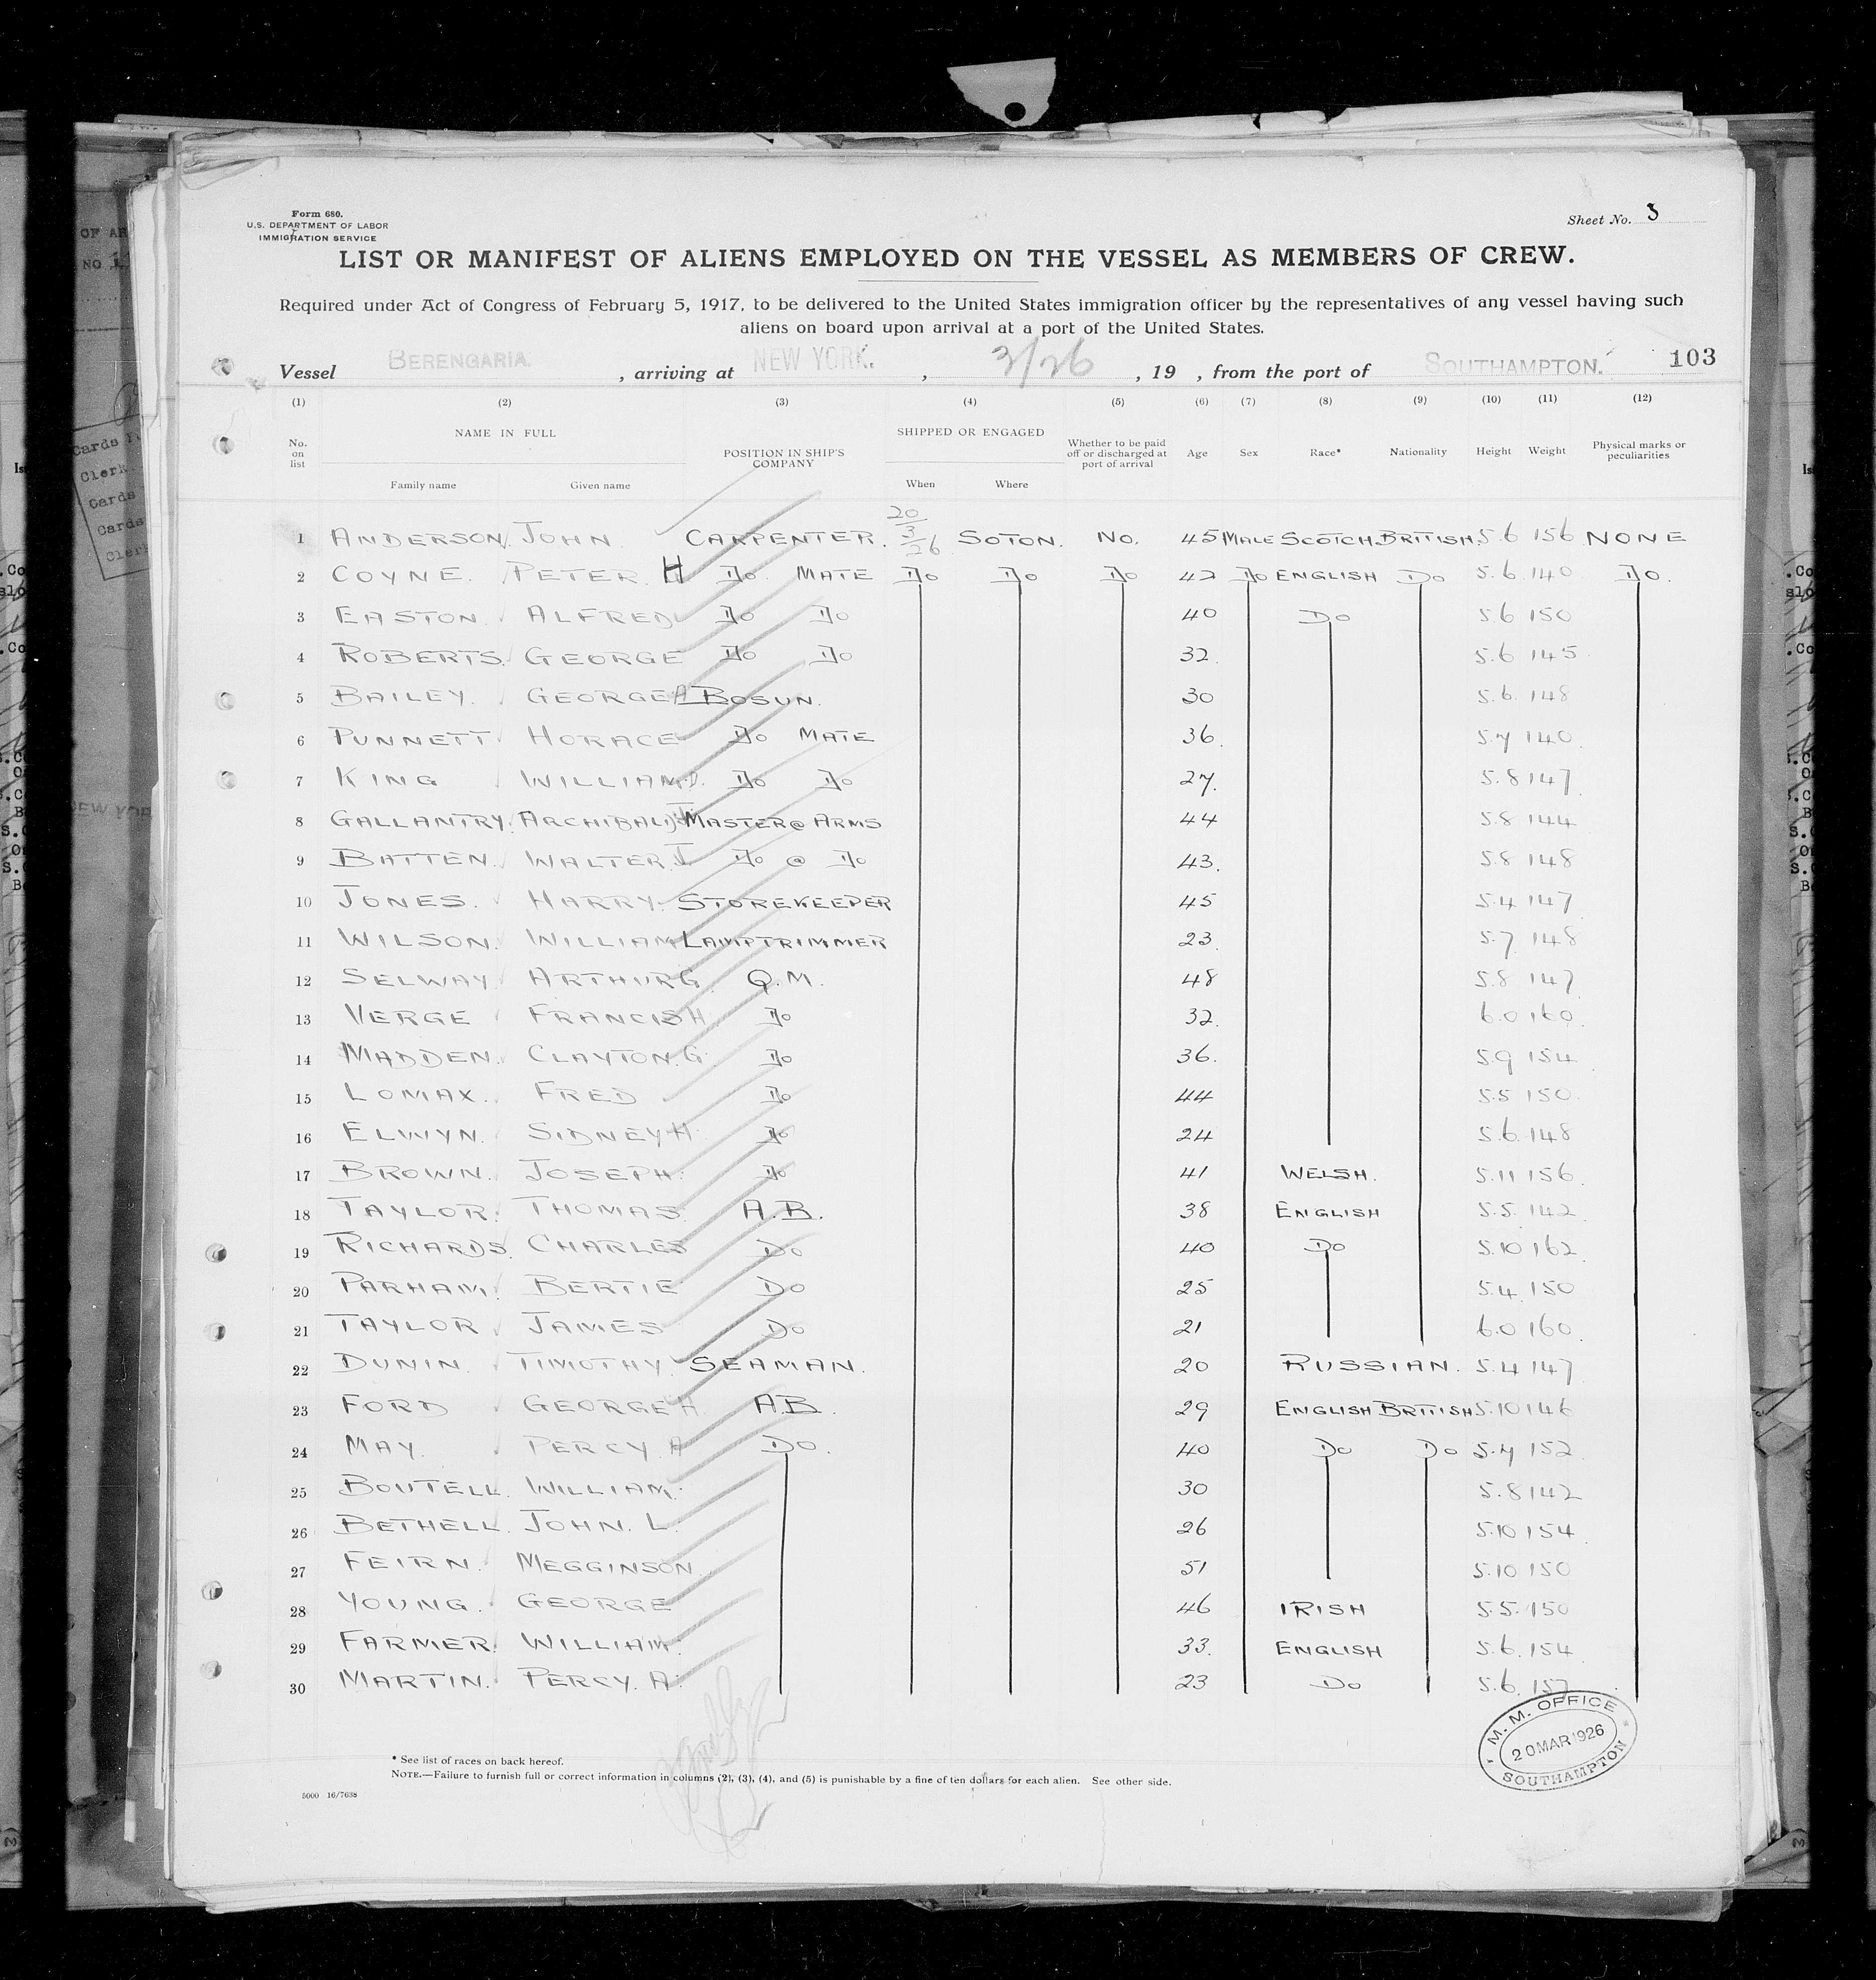 Form 680.
U.S. DEPARTMENT OF LABOR
IMMIGRATION SERVICE
Sheet No. 3
LIST OR MANIFEST OF ALIENS EMPLOYED ON THE VESSEL AS MEMBERS OF CREW.
Required under Act of Congress of February 5, 1917, to be delivered to the United States immigration officer by the representatives of any vessel having such
aliens on board upon arrival at a port of the United States.
Vessel BERENGARIA. , arriving at NEW YORK. , 3/26 , 19 , from the port of SOUTHAMPTON. 103
(1) (2) (3) (4) (5) (6) (7) (8) (9) (10) (11) (12)
No. on list NAME IN FULL Family name Given name POSITION IN SHIP'S COMPANY SHIPPED OR ENGAGED When Where Whether to be paid off or discharged at port of arrival Age Sex Race* Nationality Height Weight Physical marks or peculiarities
1 ANDERSON JOHN CARPENTER. 20/3/26 SOTON. NO. 45 MALE SCOTCH BRITISH 5.6 156 NONE
2 COYNE. PETER H Do. MATE Do Do Do 42 Do ENGLISH Do 5.6 140 Do.
3 EASTON ALFRED Do Do 40 Do 5.6 150
4 ROBERTS GEORGE Do Do 32. 5.6 145
5 BAILEY. GEORGE A BOSUN. 30 5.6. 148
6 PUNNETT HORACE Do MATE 36. 5.7 140.
7 KING WILLIAM.D. Do Do 27. 5.8 147
8 GALLANTRY. ARCHIBALD J MASTER @ ARMS 44 5.8 144
9 BATTEN. WALTER J Do @ Do 43. 5.8 148
10 JONES. HARRY. STOREKEEPER 45 5.4 147
11 WILSON. WILLIAM LAMPTRIMMER 23. 5.7 148
12 SELWAY ARTHUR G. Q.M. 48 5.8 147
13 VERGE FRANCIS H Do 32. 6.0 160.
14 MADDEN. CLAYTON.G. Do 36. 5.9 154
15 LOMAX. FRED Do 44 5.5 150.
16 ELWYN. SIDNEY H. Do 24 5.6. 148
17 BROWN. JOSEPH. Do 41 WELSH. 5.11 156.
18 TAYLOR. THOMAS. A.B. 38 ENGLISH 5.5. 142
19 RICHARDS. CHARLES Do 40 Do 5.10 162
20 PARHAM. BERTIE Do 25 5.4. 150
21 TAYLOR JAMES Do 21 6.0 160.
22 DUNIN. TIMOTHY. SEAMAN. 20 RUSSIAN. 5.4 147
23 FORD GEORGE H A.B. 29 ENGLISH BRITISH 5.10 146
24 MAY. PERCY. A Do. 40 Do Do 5.7 152
25 BOUTELL. WILLIAM. 30 5.8 142
26 BETHELL. JOHN. L. 26 5.10 154
27 FEIRN. MEGGINSON. 51 5.10 150
28 YOUNG. GEORGE 46 IRISH 5.5. 150
29 FARMER. WILLIAM. 33. ENGLISH 5.6. 154
30 MARTIN. PERCY. A. 23 Do 5.6. 157
M. M. OFFICE
20 MAR 1926
SOUTHAMPTON
* See list of races on back hereof.
NOTE.—Failure to furnish full or correct information in columns (2), (3), (4), and (5) is punishable by a fine of ten dollars for each alien. See other side.
5000 16/7638